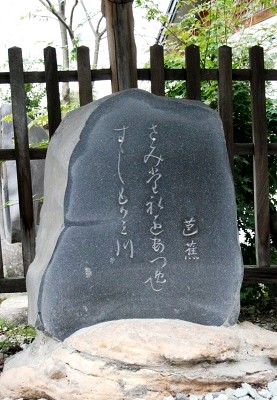 芭蕉
さみ堂礼遠あつめて
すゝしもかミ川